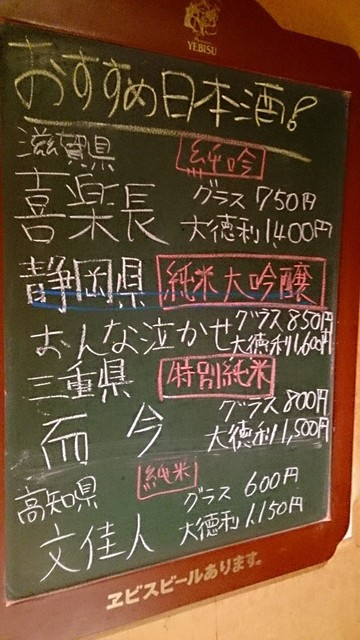 YEBISU
おすすめ日本酒!
滋賀県 純吟
喜楽長 グラス 750円
大徳利 1,400円
静岡県 純米大吟醸
おんな泣かせ グラス 850円
大徳利 1,600円
三重県 特別純米
而今 グラス 800円
大徳利 1,500円
高知県 純米
文佳人 グラス 600円
大徳利 1,150円
ヱビスビールあります。